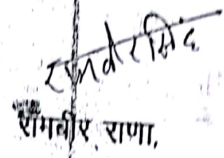 रणवीर सिंह
रामवीर राणा,